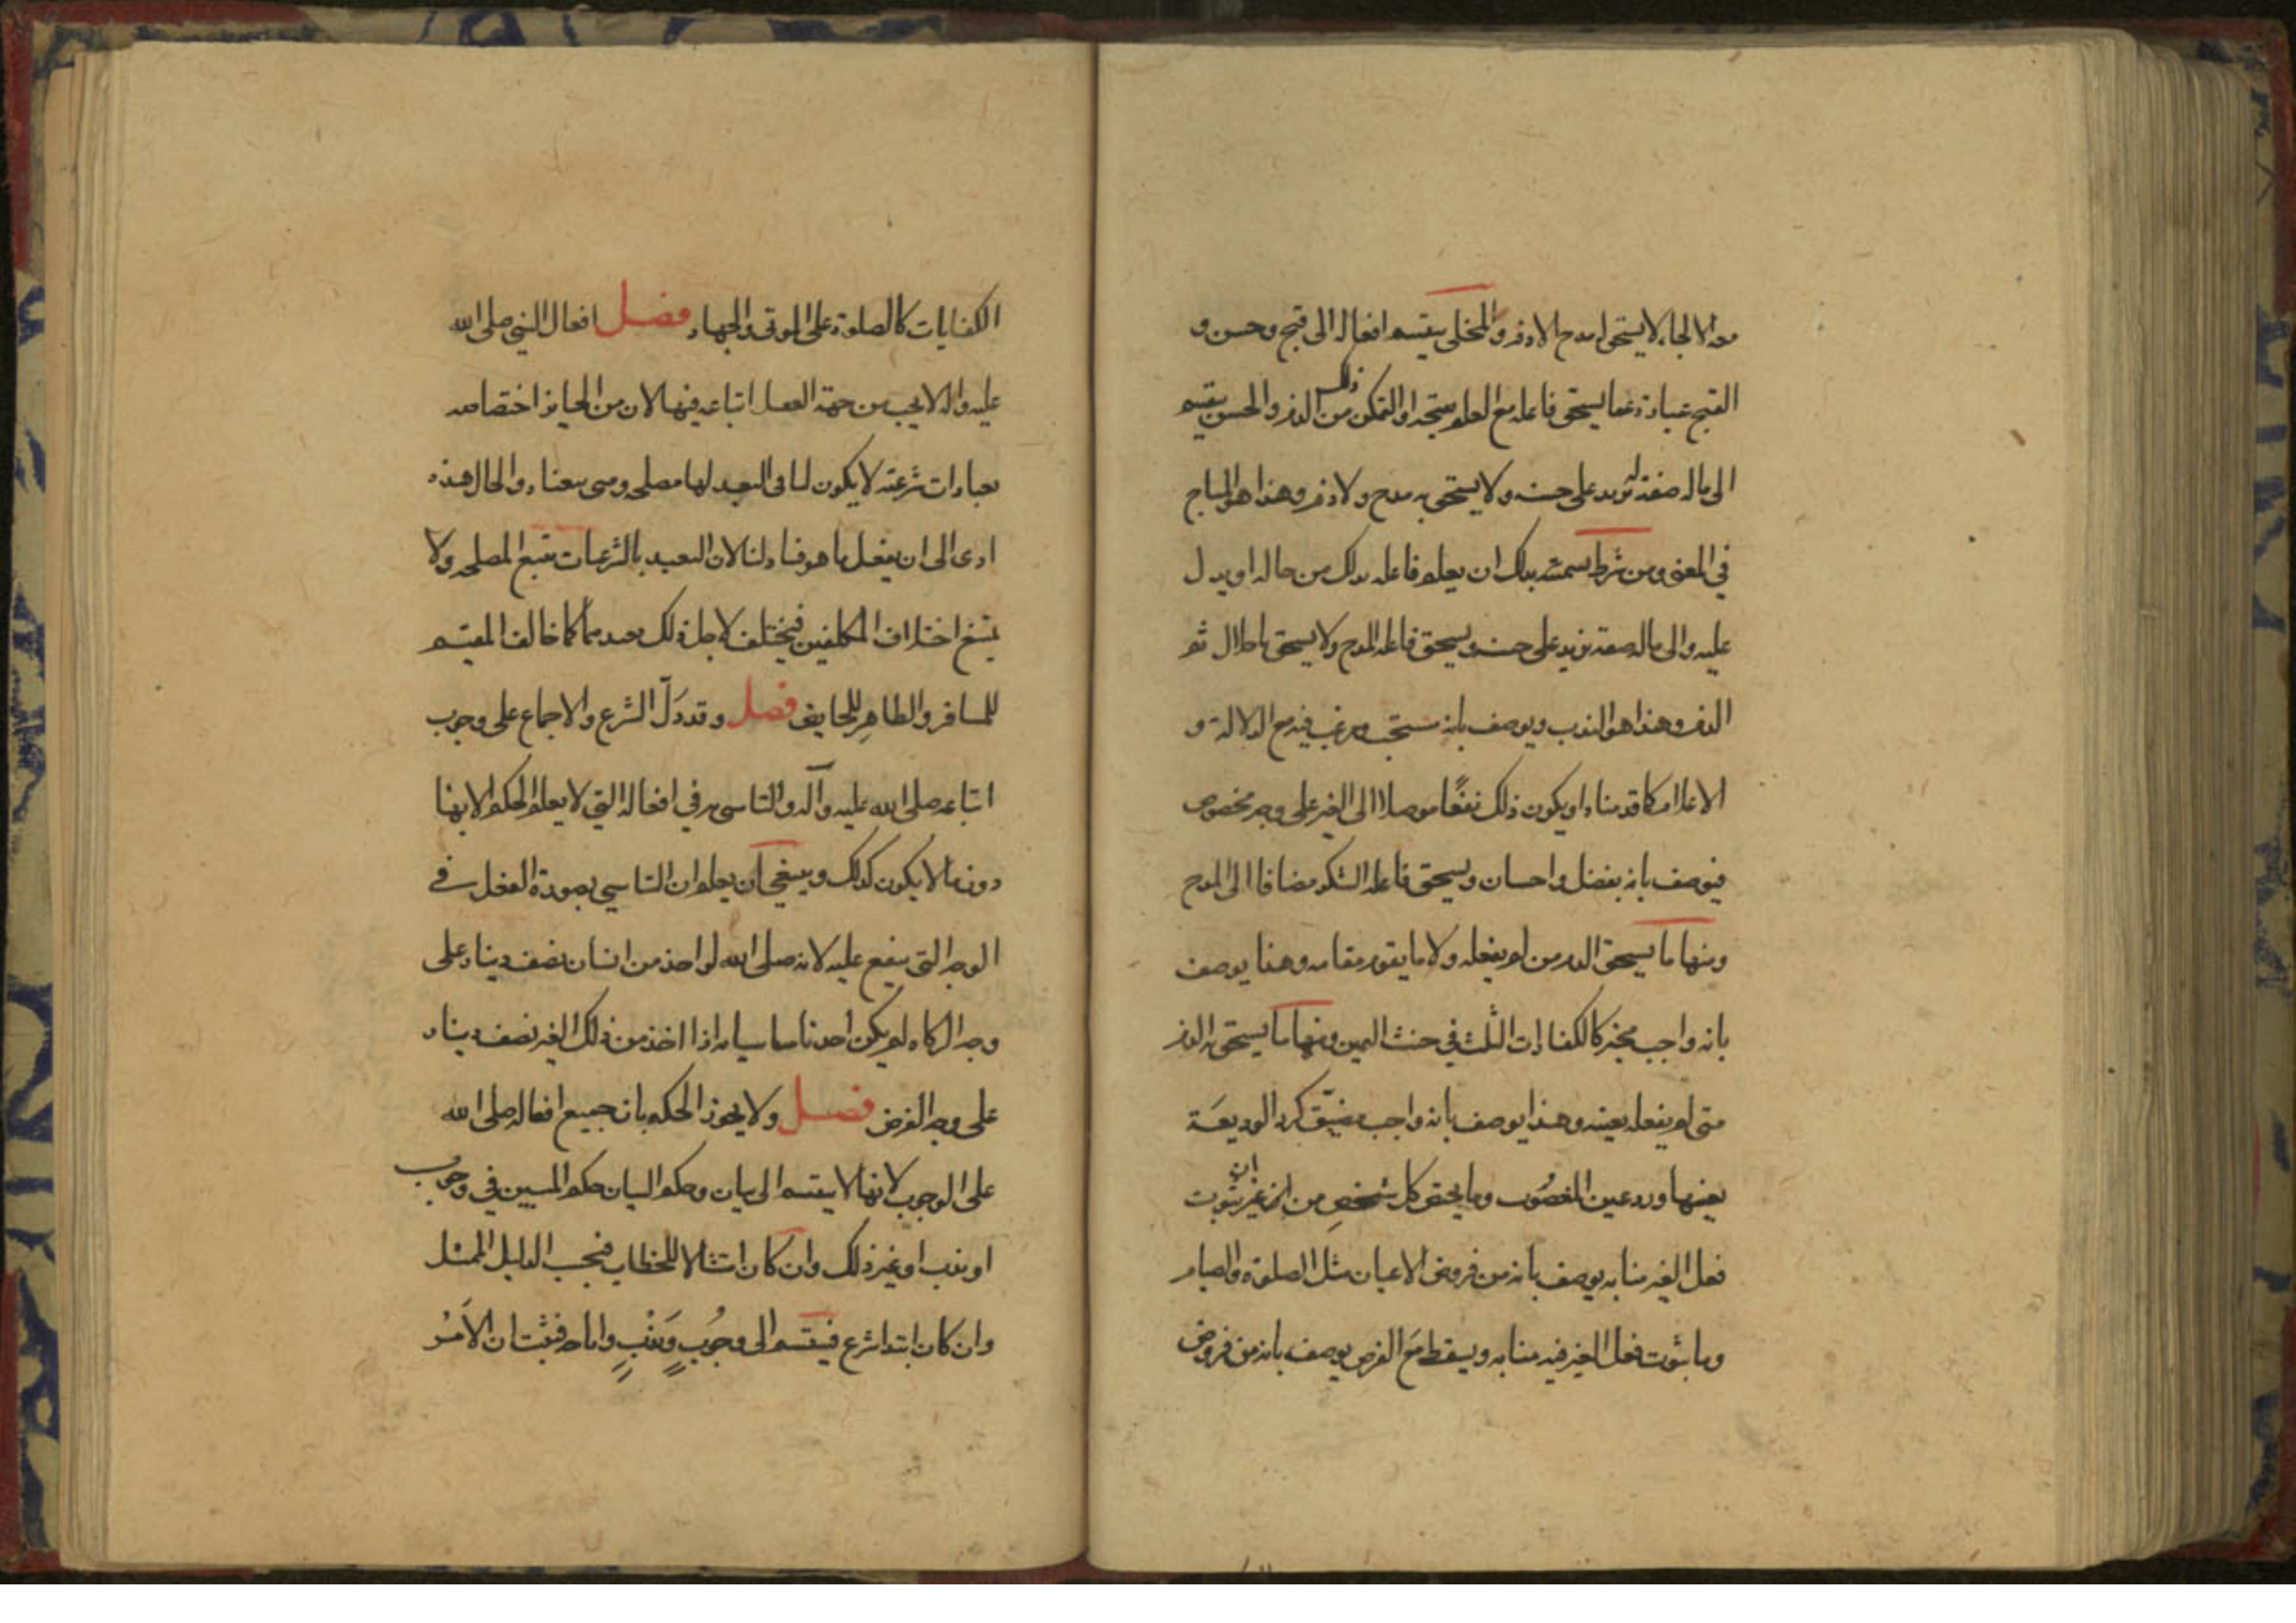 معه الالجاء لا يستحق مدح ولا ذم والمخلى ينقسم افعاله الى قبح وحسن و
القبيح عبارة عما يستحق فاعله مع العلم بقبحه او التمكن من ذلك الذم والحسن ينقسم
الى ما له صفة تزيد على حسنه ولا يستحق به مدح ولا ذم وهذا هو المباح
في المعنى ومن شرط تسميته بذلك ان يعلم فاعله ذلك من حاله او يدل
عليه والى ما له صفة تزيد على حسنه ويستحق فاعله المدح ولا يستحق باخلال ثم
الذم وهذا هو الندب ويوصف بانه مستحب ومرغب فيه مع الدلالة و
الاعلام كما قدمناه او يكون ذلك نفعًا موصلا الى الغير على وجه مخصوص
فيوصف بانه تفضل واحسان ويستحق فاعله الشكر مضافا الى المدح
ومنها ما يستحق الذم من لم يفعله ولا ما يقوم مقامه وهذا يوصف
بانه واجب مخير كالكفارات الثلث في حنث اليمين ومنها ما يستحق به الذم
متى لم يفعله بعينه وهذا يوصف بانه واجب مضيّق كرد الوديعَة
بعينها ورد عين المغصُوب وما يحق كل شخصٍ من غير ان يثوب
فعل الغير منابه يوصف بانه من فروض الاعيان مثل الصلوة والصيام
وما يثوب فعل الغير فيه منابه ويسقط مَع الفرض يوصف بانه من فروض
الكفايات كالصلوة على الموتى والجهاد فصل افعال النبي صلى الله
عليه واله لا يجب من جهة العقل اتباعه فيها لان من الجايز اختصاصه
بعبادات شرعية لا يكون لنا في التعبد لها مصلحة ومتى تبعناه والحال هذه
ادى الى ان يفعل ما هو فساد لنا لان التعبد بالشرعيات يتبع المصلحة ولا
يمتنع اختلاف المكلفين فيختلف لاجل ذلك تعبدهما كما خالف المقيم
للمسافر والطاهِر للحايض فصل وقد دَلّ الشرع والاجماع على وجوب
اتباعه صلى الله عليه وآله والتاسي به في افعاله التي لا يعلم الحكم الا بها
دون ما لا يكون كذلك وينبغي ان يعلم ان التاسي بصورة الفعل في
الوجه التي يقع عليه لانه صلى الله لو اخذ من انسان نصف دينار على
وجه الزكاه لم يكن احدنا متاسيا به اذا اخذ من ذلك الغير نصف دينار
على وجه الفرض فصل ولا يجوز الحكم بان جميع افعاله صلى الله
على الوجوب لانها لا ينقسم الى بيان وحكم البيان حكم المبين في وجوب
او ندب او غير ذلك وان كان امتثالا للخطاب فيجب الدليل الممثل
وان كان ابتدا شرع فينقسم الى وجُوبٍ وَندْبٍ واباحه فيثبت ان الاَمْر